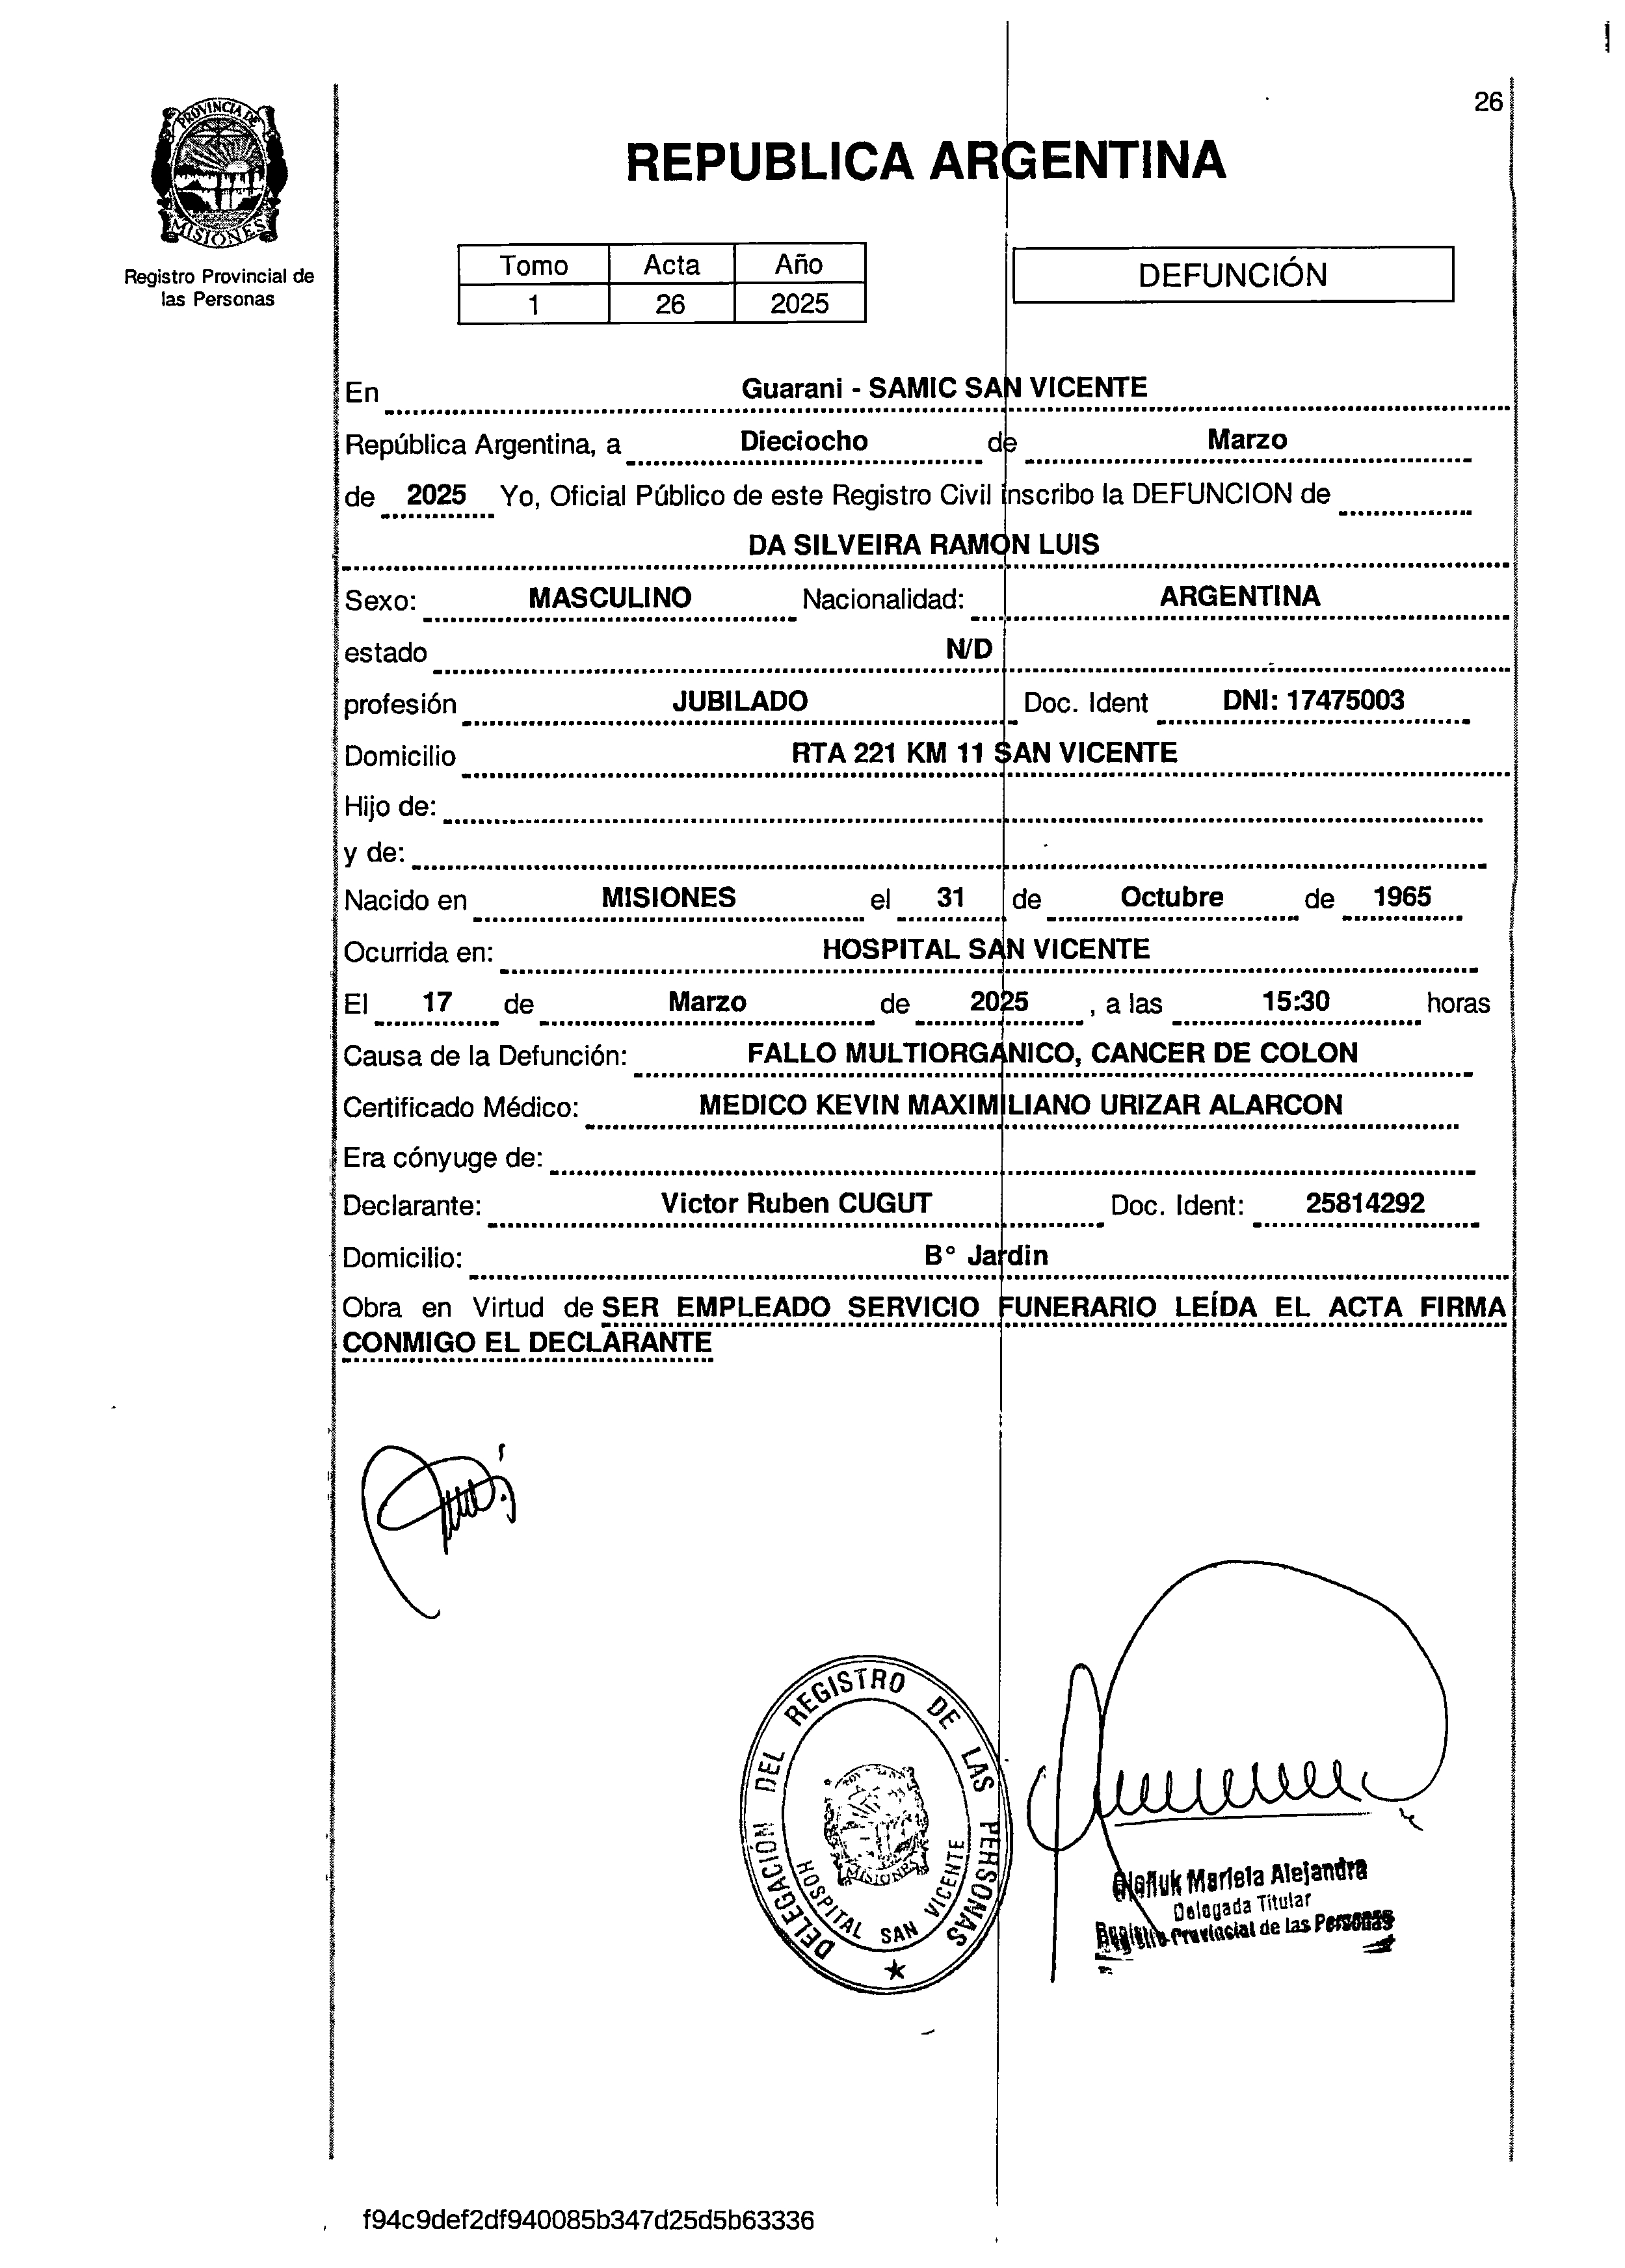 26
PROVINCIA DE
MISIONES
Registro Provincial de
las Personas
REPUBLICA ARGENTINA
Tomo Acta Año
1 26 2025
DEFUNCIÓN
En Guarani - SAMIC SAN VICENTE
República Argentina, a Dieciocho de Marzo
de 2025 Yo, Oficial Público de este Registro Civil inscribo la DEFUNCION de
DA SILVEIRA RAMON LUIS
Sexo: MASCULINO Nacionalidad: ARGENTINA
estado N/D
profesión JUBILADO Doc. Ident DNI: 17475003
Domicilio RTA 221 KM 11 SAN VICENTE
Hijo de:
y de:
Nacido en MISIONES el 31 de Octubre de 1965
Ocurrida en: HOSPITAL SAN VICENTE
El 17 de Marzo de 2025 , a las 15:30 horas
Causa de la Defunción: FALLO MULTIORGANICO, CANCER DE COLON
Certificado Médico: MEDICO KEVIN MAXIMILIANO URIZAR ALARCON
Era cónyuge de:
Declarante: Victor Ruben CUGUT Doc. Ident: 25814292
Domicilio: B° Jardin
Obra en Virtud de SER EMPLEADO SERVICIO FUNERARIO LEÍDA EL ACTA FIRMA
CONMIGO EL DECLARANTE
DELEGACIÓN DEL REGISTRO DE LAS PERSONAS
HOSPITAL SAN VICENTE
MISIONES
Mariela Alejandra
Delegada Titular
Registro Provincial de las Personas
f94c9def2df940085b347d25d5b63336